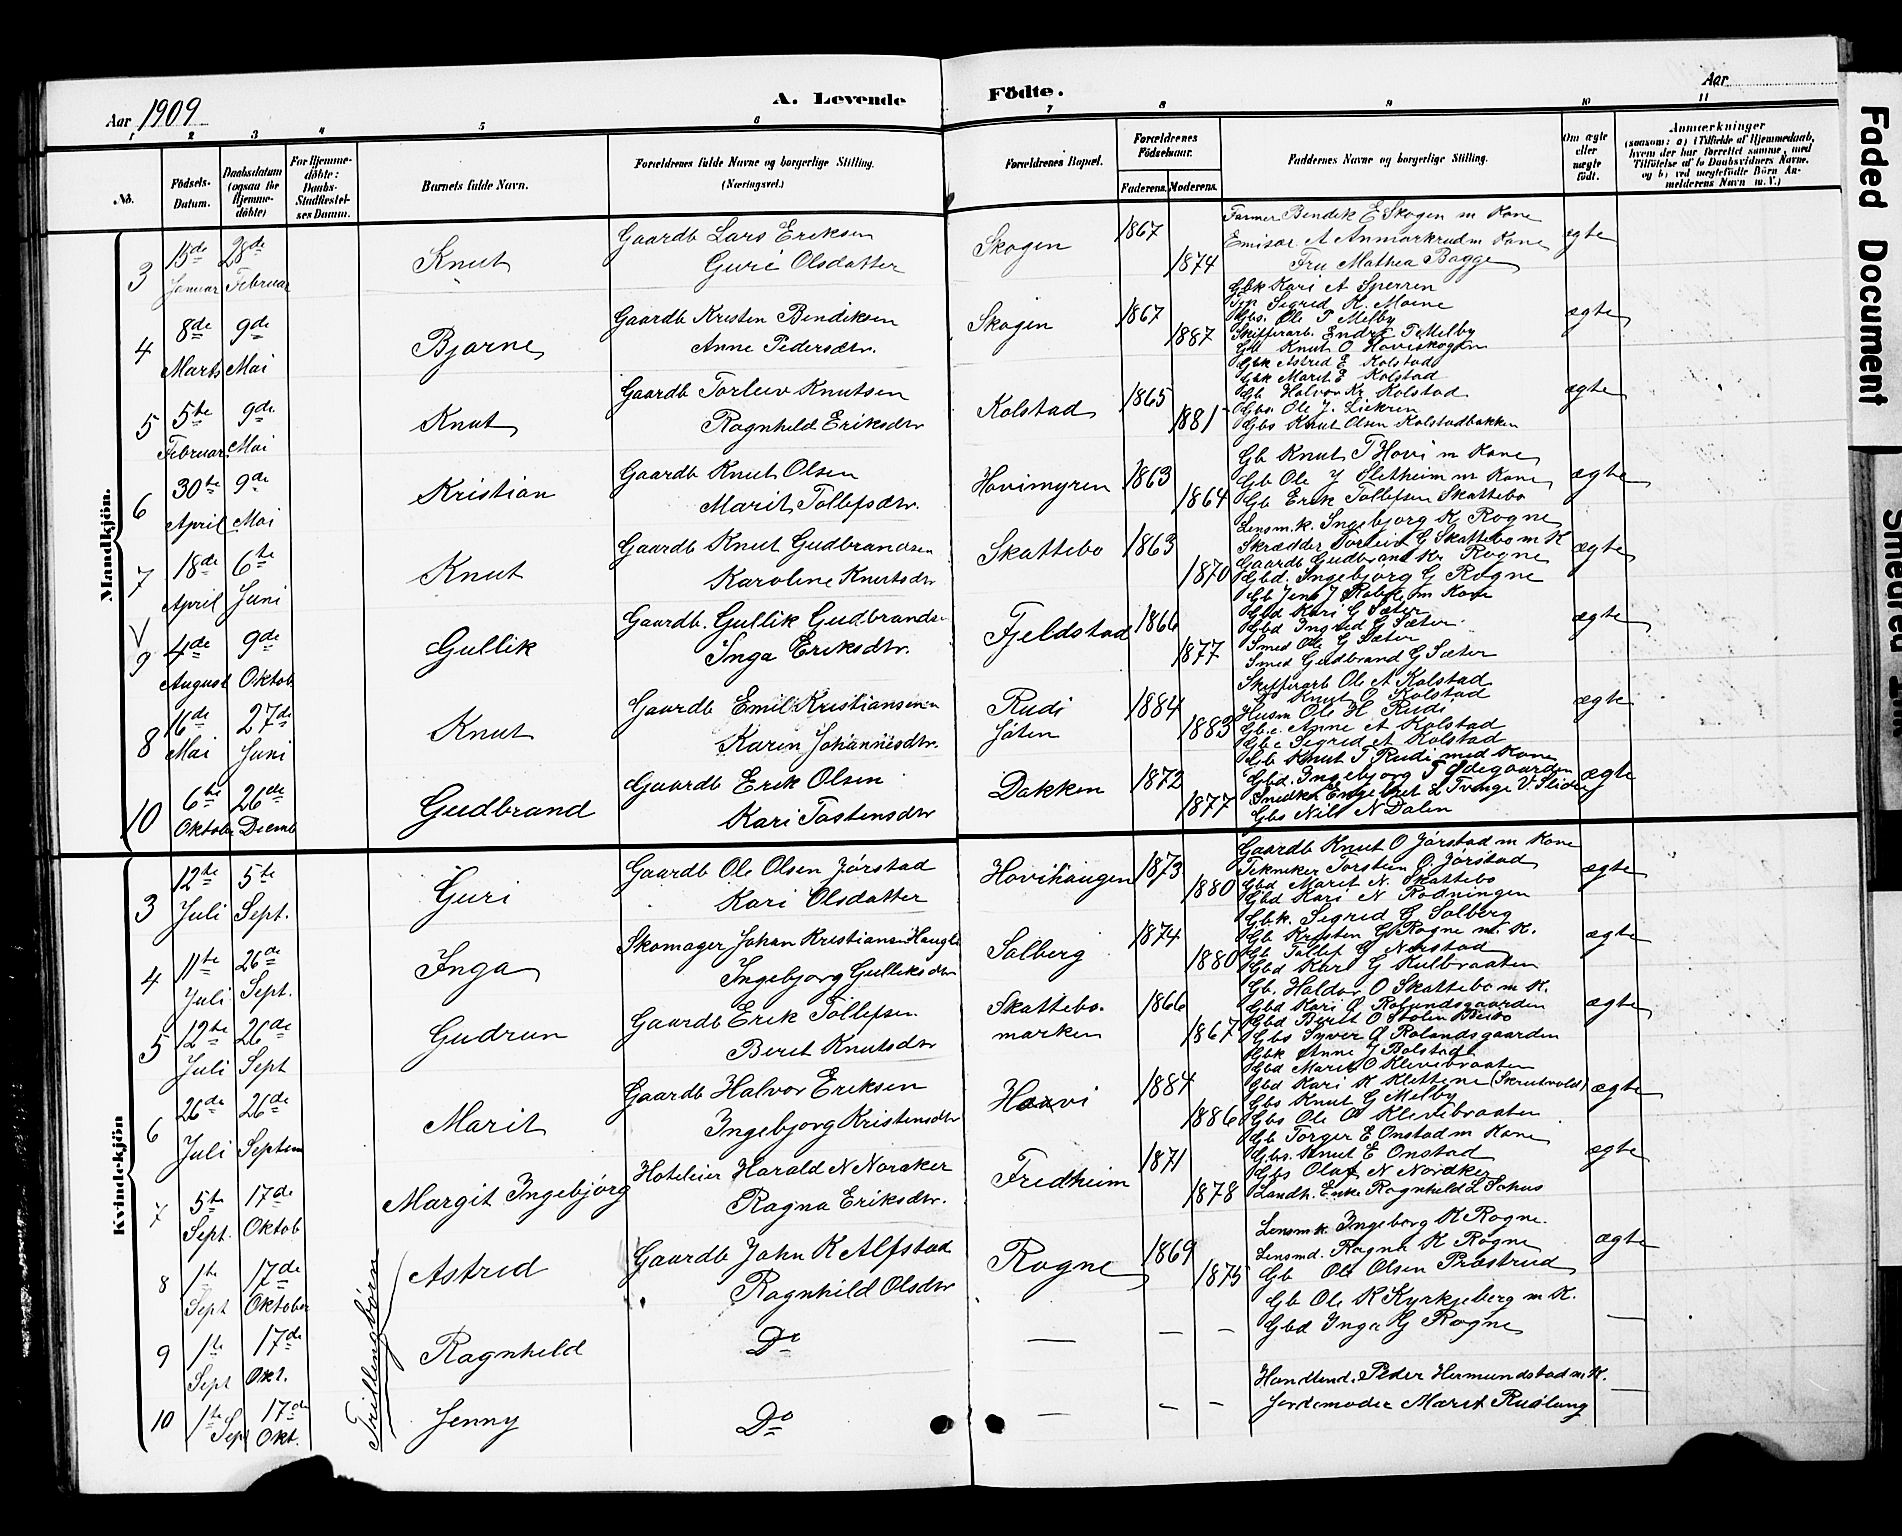 Aar 1909
A. Levende Födte.
Aar
1 2 3 4 5 6 7 8 9 10 11
No. Födsels-Datum. Daabsdatum (ogsaa för Hjemmedöbte) For Hjemmedöbte: Daabs-Stadfæstelses Datum. Barnets fulde Navn. Forældrenes fulde Navne og borgerlige Stilling. (Næringsvei.) Forældrenes Bopæl. Forældrenes Födselsaar. Faderens. Moderens. Faddernes Navne og borgerlige Stilling. Om ægte eller uægte födt. Anmærkninger (saasom: a) i Tilfælde af Hjemmedaab, hvem der har forrettet samme, med Tilföielse af to Daabsvidners Navne, og b) ved uægtefödte Börn Anmelderens Navn m. V.)
Mandkjön.
3 15de Januar 28de Februar Knut Gaardb Lars Eriksen Guri Olsdatter Skogen 1867 1874 ægte
Farmer Bendik E Skogen m Kone
Emisær A Anmarkrud m Kone
Fru Mathea Bagge
4 8de Marts 9de Mai Bjarne Gaardb Kristen Bendiksen Anne Pedersdtr. Skogen 1867 1887 ægte
Gbk Kari A Sperren
Sigrid K. Moene
Gbs. Ole P Melby
Skiferarb. Endre T Melby
Gb Knut O Hoviskogen
5 5te Februar 9de Mai Knut Gaardb Torleiv Knutsen Ragnhild Eriksdtr Kolstad 1865 1881 ægte
Gbk Astrid E Kolstad
Gbk Marit E Kolstad
Gb Halvor Kr Kolstad
Gbs Ole J. Liekren
Gbs Knut Olsen Kolstadbakken
6 30te April 9de Mai Kristian Gaardb Knut Olsen Marit Tollefsdtr. Hovimyren 1863 1864 ægte
Gb Knut T Hovi m Kone
Gb Ole J Sletheim m Kone
Gb Erik Tollefsen Skattebo
7 18de April 6te Juni Knut Gaardb Knut Gudbrandsen Karoline Knutsdtr Skattebo 1863 1870 ægte
Lensm.k. Ingebjorg K Rogne
Skrædder Torleiv G Skattebo m K
Gaardb Gudbrand Kr Rogne
Gbd. Ingebjörg G Rogne
9 4de August 9de Oktob Gullik Gaardb. Gullik Gudbrands. Inga Eriksdtr. Fjeldstad 1866 1877 ægte
Gb Jens J m Kone
Gbd Kari G Sæter
Gbd Ingrid G Sæter
Smed Ole G Sæter
Smed Gudbrand G Sæter
8 16de Mai 27de Juni Knut Gaardb Emil Kristiansen Karen Johannesdtr. Rudi Jøten 1884 1883 ægte
Skiferarb Ole A Kolstad
Do Knut O Kolstad
Husm Ole H. Rudi
Gb.c. Anne A Kolstad
Gb.c Sigrid A Kolstad
10 6te Oktober 26de Decemb Gudbrand Gaardb Erik Olsen Kari Tostensdtr Dakken 1872 1877 ægte
Gb Knut T Rudi med Kone
Gbd. Ingebjorg T Ødegaarden
Snedker Engebret L Tvenge V Slidre
Gbs Nils N Dalen
Kvindekjön
3 12te Juli 5te Sept. Guri Gaardb Ole Olsen Jörstad Kari Olsdatter Hovihaugen 1873 1880 ægte
Gaardb Knut O Jörstad m Kone
Tekniker Torstein O. Jörstad
Gbd Marit N. Skattebo
Gbd Kari N Rodningen
4 11te Juli 26de Sept. Inga Skomager Johan Kristiansen Haugli Ingebjorg Gulliksdtr Solberg 1874 1880 ægte
Gbk. Sigrid G Solberg
Gb Kristen G. Rogne m. K.
Gb Tollef G Nerstad
Gbd Kari G Kulbraaten
5 12te Juli 26de Sept Gudrun Gaardb Erik Tollefsen Berit Knutsdtr Skattebo. marken 1866 1867 ægte
Gb. Haldor O Skattebo m K.
Gbd Kari O Rolandsgaarden
Gbd Berit O Stolen
Gbs Syver O Rolandsgaarden
6 26de Juli 26de Septem Marit Gaardb Halvor Eriksen Ingebjorg Kristensdtr Hovi 1884 1886 ægte
Gbk Anne J Bolstad
Gbd Marit O Klevebraaten
Gbd Kari K Klettene (Skrutvold)
Gbs Knut G Melby
Gbs Ole O Klevebraaten
7 5te Sept. 17de Oktob Margit Ingebjörg Hoteleier Harald N Noraker Ragna Eriksdtr. Fredheim 1871 1878 ægte
Gb Torger E Onstad m Kone
Gbs. Knut E Onstad
Gbs Olaf N Nordker
Landh. Enke Ragnhild L Sohus
Trillingbörn
8 1te Sept 17de Oktober Astrid Gaardb John K Alfstad Ragnhild Olsdtr Rogne 1869 1875 ægte
Lensmk. Ingeborg K Rogne.
Lensmd. Ragna K Rogne
Gb Ole Olsen Præstrud
9 1te Sept 17de Okt. Ragnhild Do — — — —
Gb Ole K Kyrkjeberg m K.
Gbd Inga G Rogne
10 1te Sept 17de Okt. Jenny Do — — — —
Handlend. Peder Hermundstad m. K.
Jordemoder Marit Rudlang
Faded Document